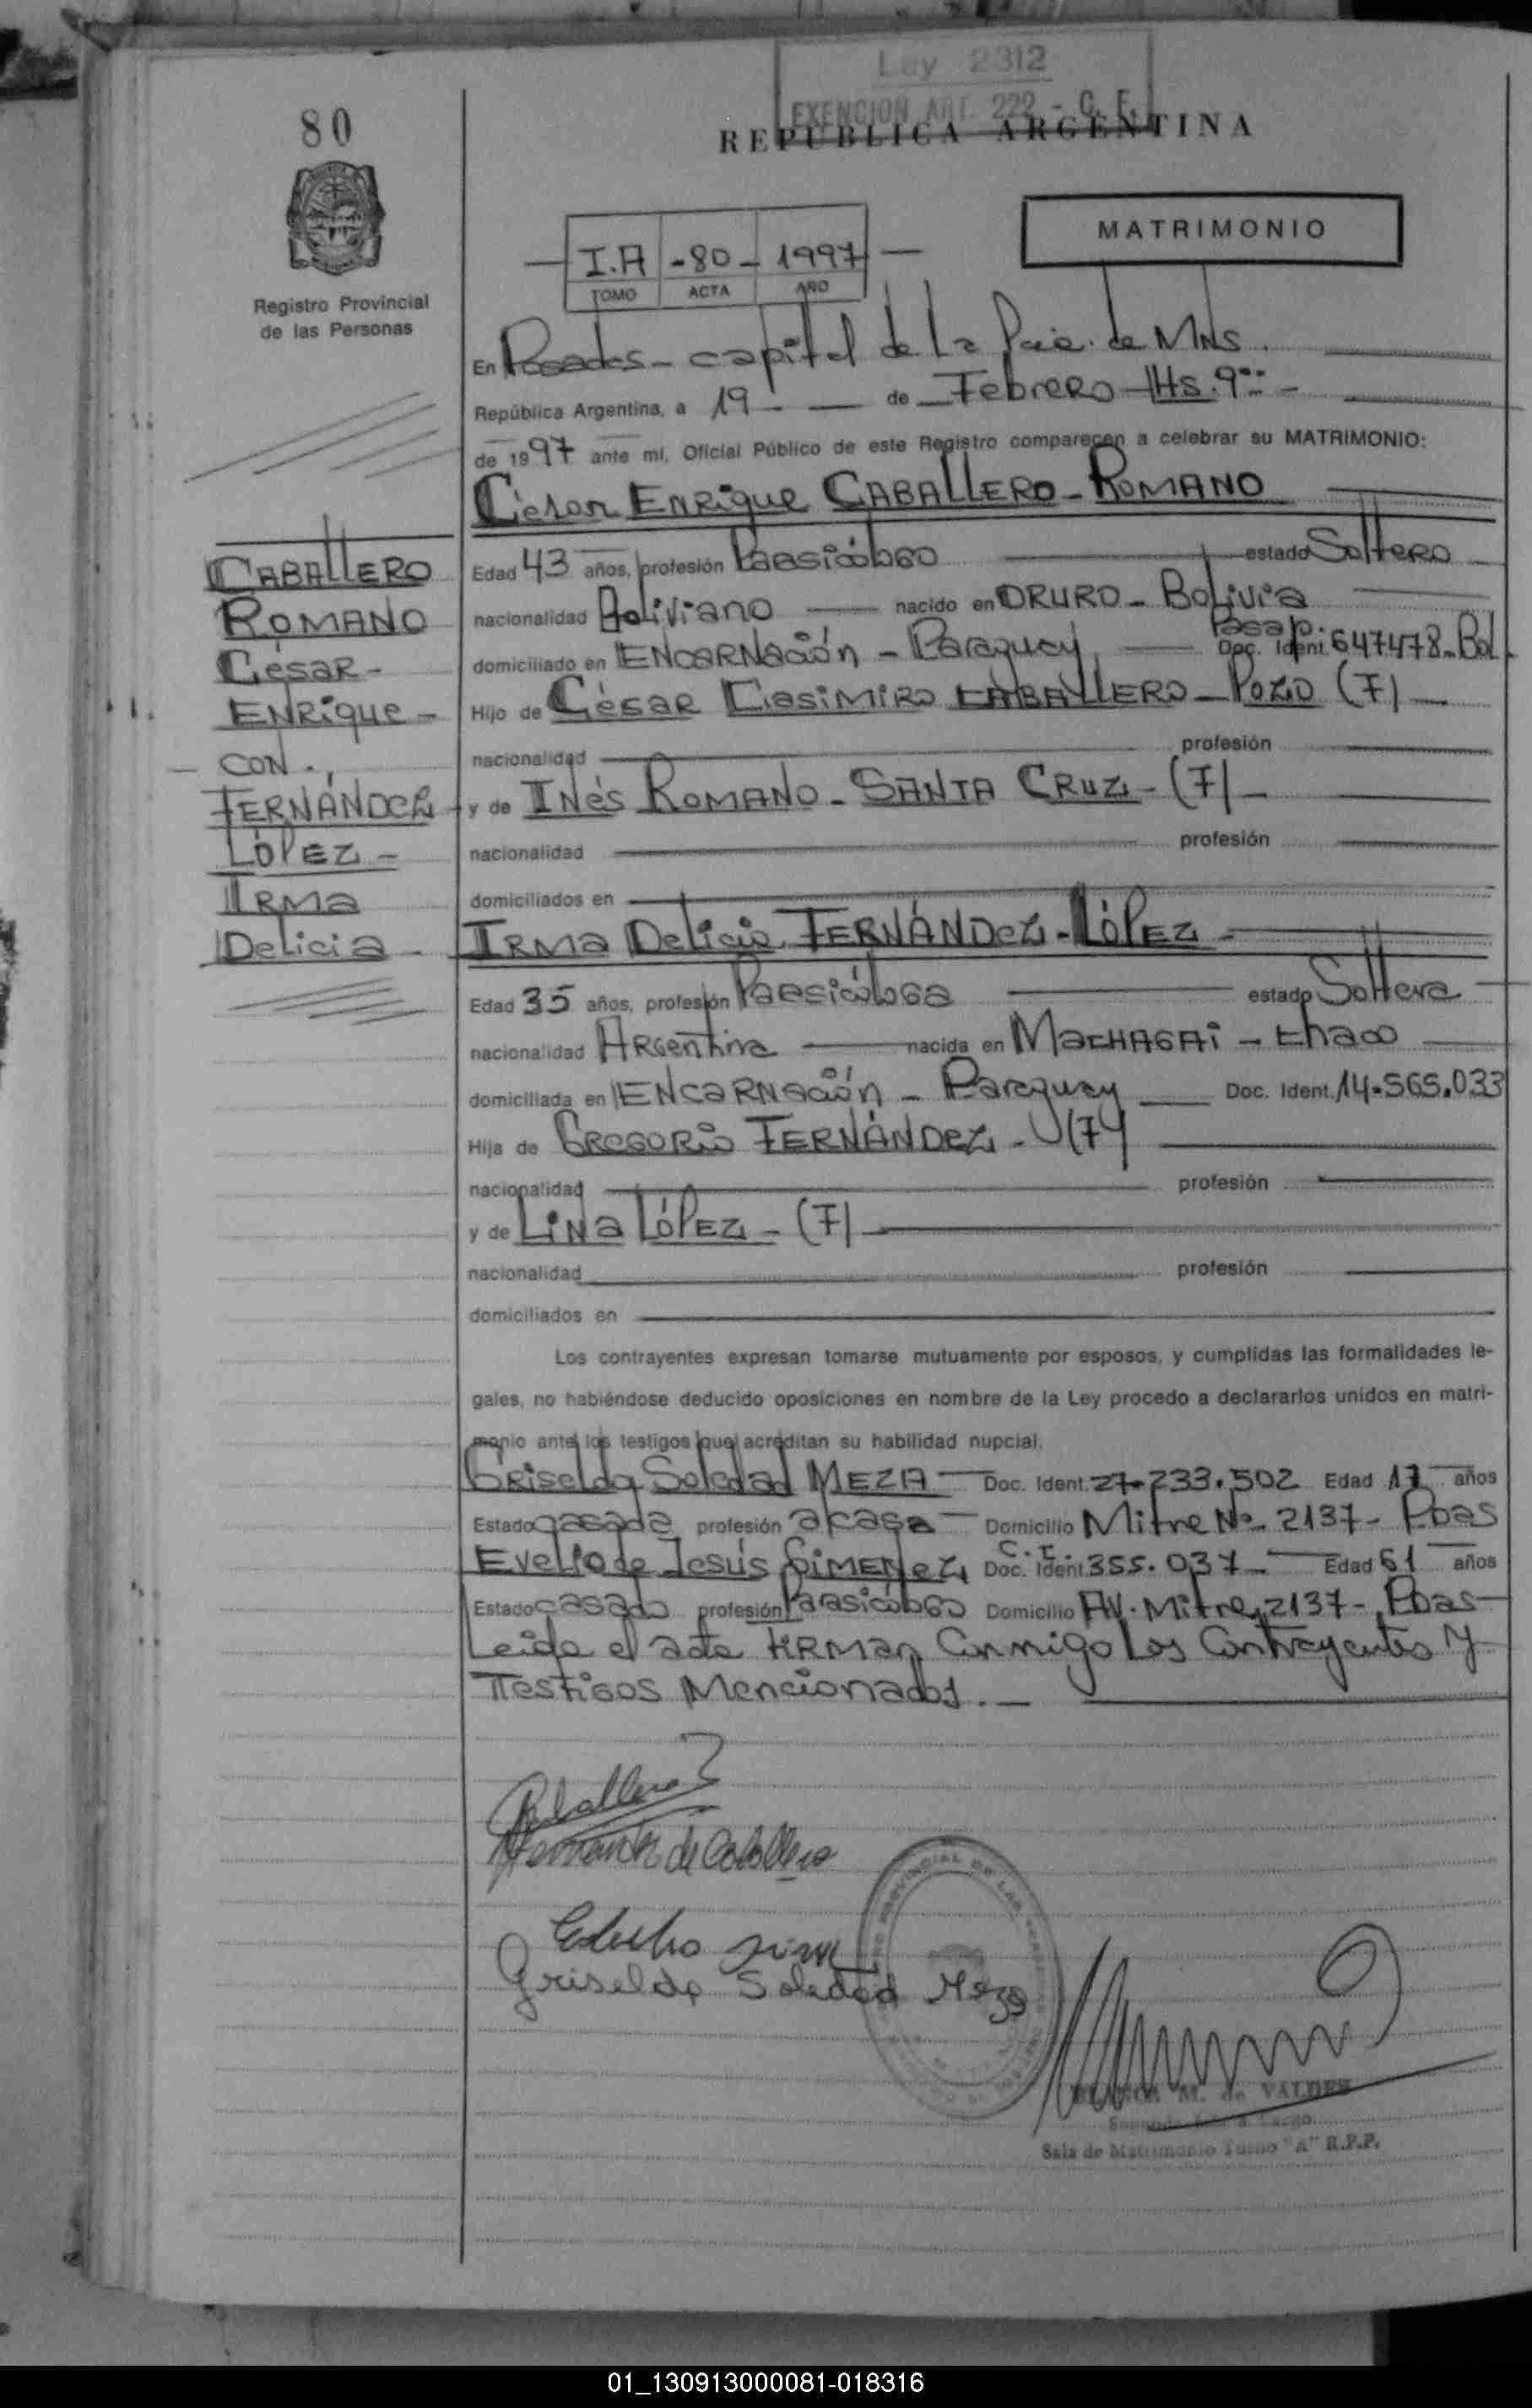 Ley 2312
EXENCION ART. 222 - C. F.
80
REPUBLICA ARGENTINA
MATRIMONIO
I.A -80- 1997
TOMO ACTA AÑO
Registro Provincial
de las Personas
En Posadas - capital de la Pcia. de Mns.
República Argentina, a 19 - de Febrero - Hs. 9
de 1997 ante mí, Oficial Público de este Registro comparecen a celebrar su MATRIMONIO:
César ENRique CABALLERO - ROMANO
CABALLERO
ROMANO
César -
ENRique -
CON.,
FERNÁNDEZ
LÓPEZ -
IRMa
Delicia -
Edad 43 años, profesión Parasicólogo estado Soltero
nacionalidad Boliviano nacido en ORURO - Bolivia
Pasap.
domiciliado en ENCARNación - Paraguay Doc. Ident. 647478 - Bol.
Hijo de César Casimiro CABALLERO - POZO (F)
nacionalidad profesión
y de INés ROMANO - SANTA CRUZ - (F) -
nacionalidad profesión
domiciliados en
IRMa Delicia FERNÁNDEZ - LÓPEZ -
Edad 35 años, profesión Parasicóloga estado Soltera
nacionalidad ARgentina nacida en MaCHAGAi - Chaco
domiciliada en ENCARNación - Paraguay Doc. Ident. 14.565.033
Hija de GREGORio FERNÁNDEZ - (F)
nacionalidad profesión
y de LiNa LóPEZ - (F)
nacionalidad profesión
domiciliados en
Los contrayentes expresan tomarse mutuamente por esposos, y cumplidas las formalidades le-
gales, no habiéndose deducido oposiciones en nombre de la Ley procedo a declararlos unidos en matri-
monio ante los testigos que acreditan su habilidad nupcial.
GRiselda Soledad MEZA Doc. Ident. 27.233.502 Edad 17 años
Estado casada profesión a casa Domicilio Mitre Nº 2137 - Pdas
C. I.
Evelio de Jesús GiMENeZ Doc. Ident. 355.037 - Edad 61 años
Estado casado profesión Parasicólogo Domicilio AV. Mitre 2137 - Pdas
Leida el acta FIRMan Conmigo Los Contrayentes y
Testigos Mencionados. -
Caballero
Fernandez de Caballero
Griselda Soledad Meza
M. de VALDES
Sala de Matrimonio Turno "A" R.P.P.
01_130913000081-018316